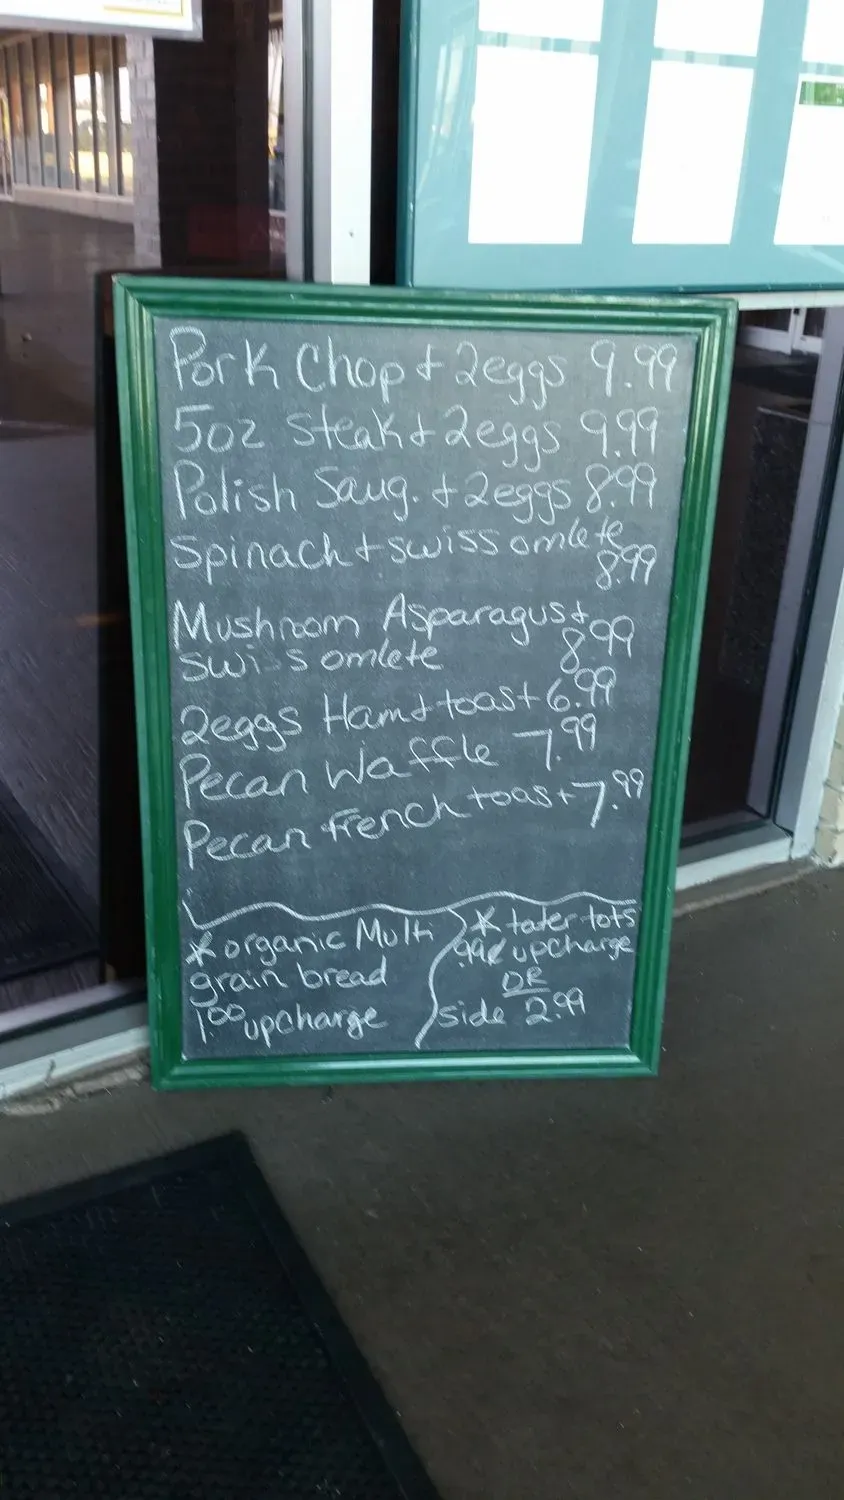 Pork Chop + 2eggs 9.99
5oz Steak + 2eggs 9.99
Polish Saug. + 2eggs 8.99
Spinach + swiss omlete
8.99
Mushroom Asparagus +
swiss omlete 8.99
2eggs Ham + toast 6.99
Pecan Waffle 7.99
Pecan French toast 7.99
* organic Multi
grain bread
1.00 upcharge
* tater tots
99¢ upcharge
OR
side 2.99